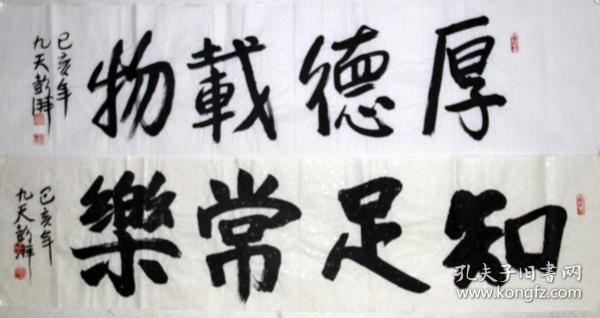 厚德載物
己亥年
九天彭湃
知足常樂
己亥年
九天彭湃
孔夫子旧书网
www.kongfz.com